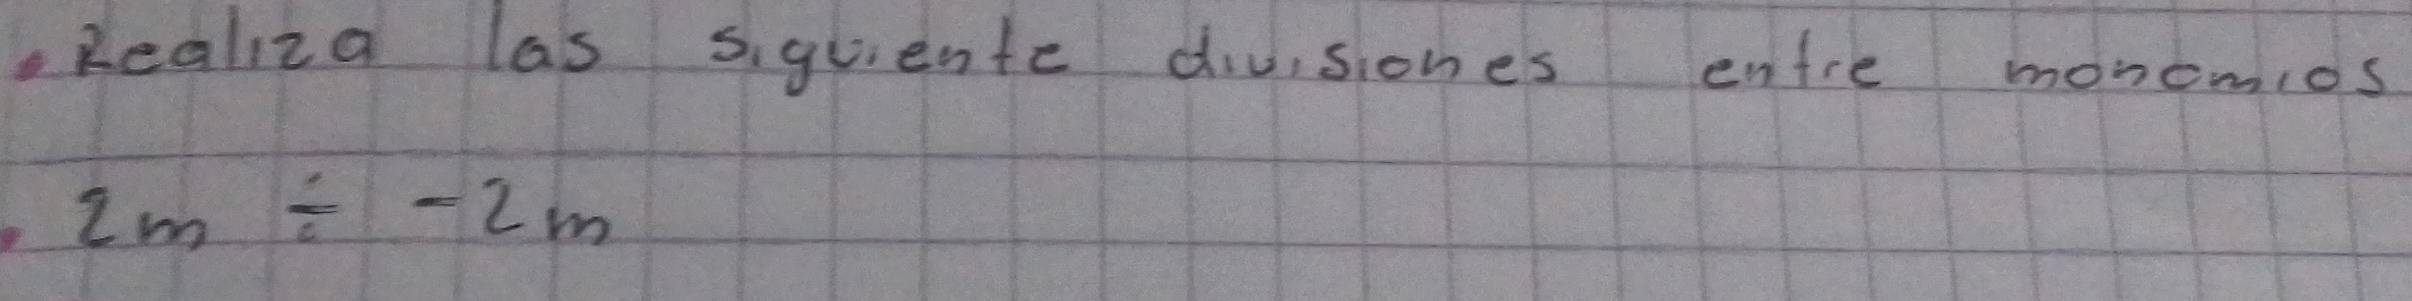 Realiza las siguiente divisiones entre monomios
2m ÷ -2m